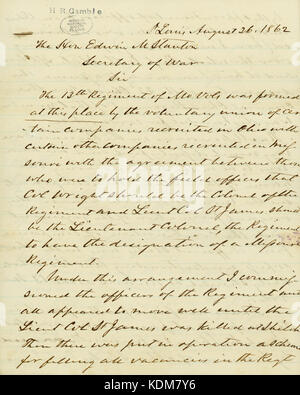 H. R. Gamble
St Louis August 26. 1862
The Hon Edwin M Stanton
Secretary of War
Sir
The 13th Regiment of Mo Vols was formed
at this place by the voluntary union of cer
tain companies recruited in Ohio with
certain other companies recruited in Mis
souri with the agreement between those
who were to hold the field offices that
Col Wright should be the Colonel of the
Regiment and Lieut Col St James should
be the Lieutenant Colonel, the Regiment
to have the designation of a Missouri
Regiment.
Under this arrangement I commis
sioned the officers of the Regiment and
all appeared to move well until the
Lieut Col St James was killed at Shiloh
Then there was put in operation a scheme
for filling all vacancies in the Regt
alamy
Image ID: KDM7Y6
www.alamy.com